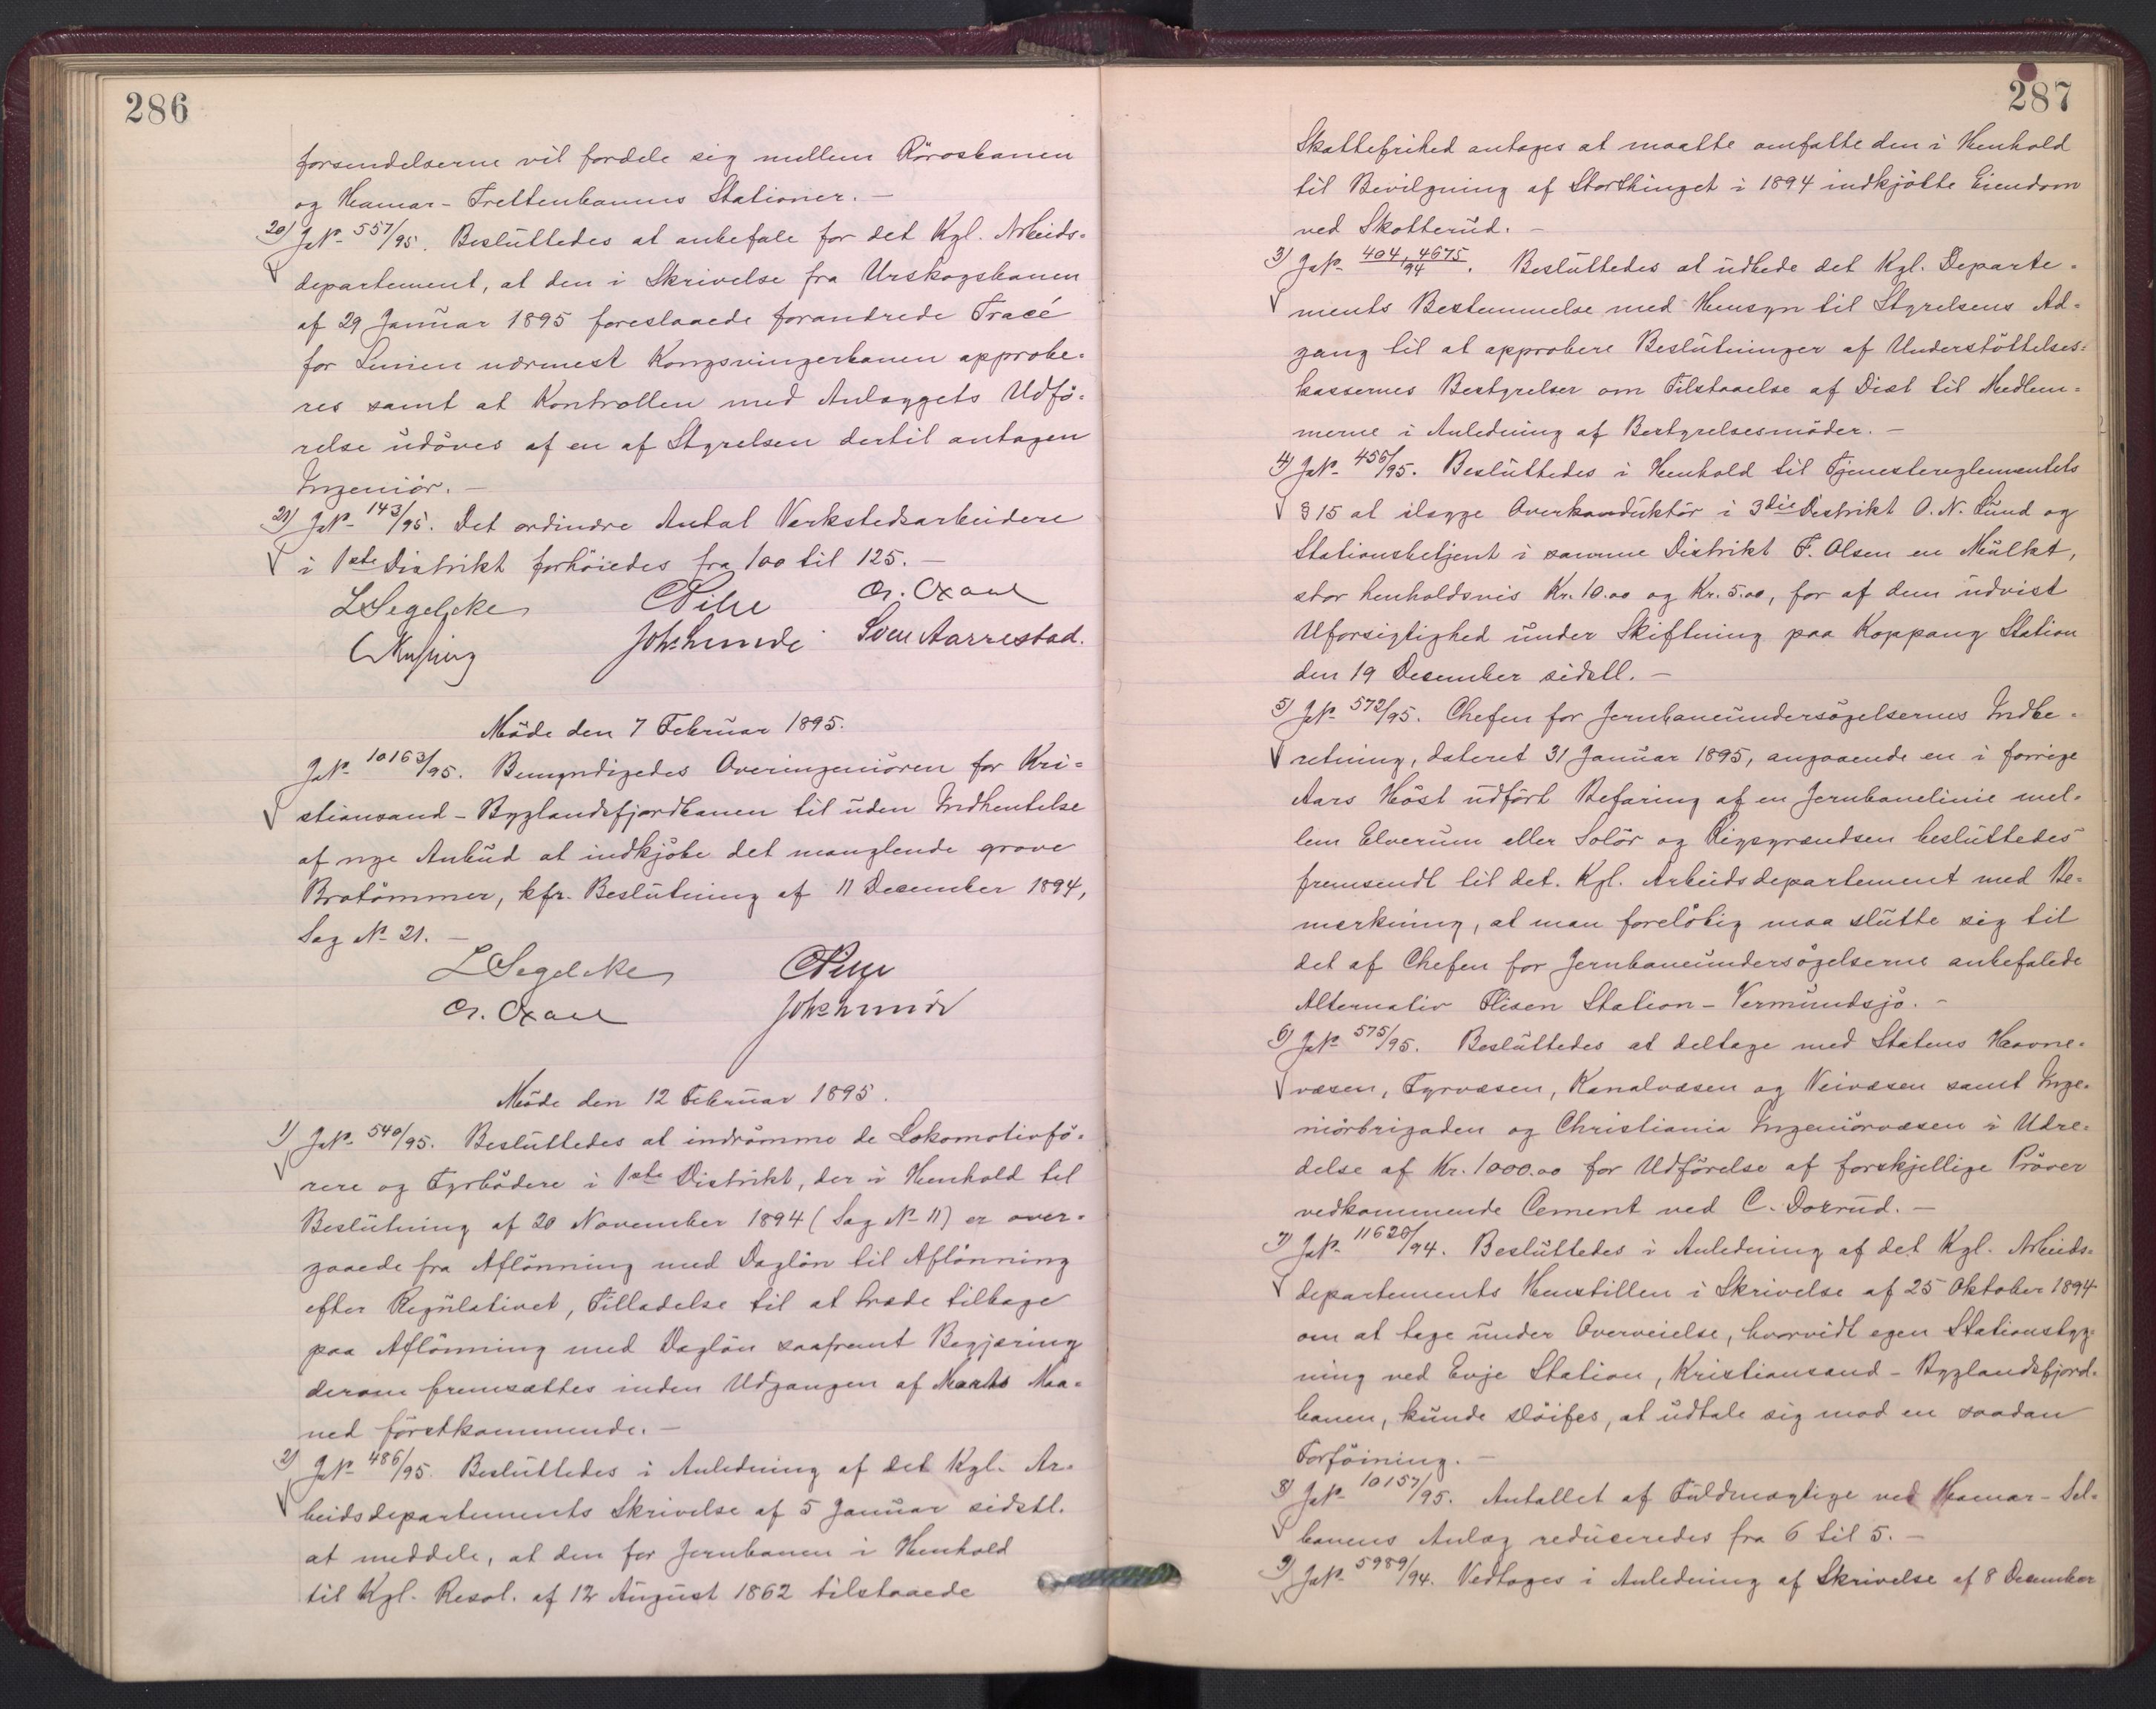 286
forsendelserne vil fordele sig mellem Rørosbanen
og Hamar-Trettenbanens Stationer. –
20) JN⁰ 557/95. Besluttedes at anbefale for det Kgl. Arbeids-
departement, at den i Skrivelse fra Urskogsbanen
af 29 Januar 1895 foreslaaede forandrede Tracé
for Linien nærmest Kongsvingerbanen approbe-
res samt at Kontrollen med Anlæggets Udfø-
relse udøves af en af Styrelsen dertil antagen
Ingeniør. –
21) JN⁰ 143/95. Det ordinære Antal Verkstedsarbeidere
i 1ste Distrikt forhøiedes fra 100 til 125. –
L Segelcke CPihl Cr. Oxaal
Joh. Lunde Sven Aarrestad.
Møde den 7 Februar 1895.
JN⁰ 10163/95. Bemyndigedes Overingeniøren for Kri-
stiansand-Byglandsfjordbanen til uden Indhentelse
af nye Anbud at indkjøbe det manglende grove
Brotømmer, kfr. Beslutning af 11 December 1894,
Sag N⁰ 21. –
L Segelcke CPihl
Cr. Oxaal Joh. Lunde
Møde den 12 Februar 1895.
1) JN⁰ 540/95. Besluttedes at indrømme de Lokomotivfø-
rere og Fyrbødere i 1ste Distrikt, der i Henhold til
Beslutning af 20 November 1894 (Sag N⁰ 11) er over-
gaaede fra Aflønning med Dagløn til Aflønning
efter Regulativet, Tilladelse til at træde tilbage
paa Aflønning med Dagløn saafremt Begjæring
derom fremsættes inden Udgangen af Marts Maa-
ned førstkommende. –
2) JN⁰ 486/95. Besluttedes i Anledning af det Kgl. Ar-
beidsdepartements Skrivelse af 5 Januar sidstl.
at meddele, at den for Jernbanen i Henhold
til Kgl. Resol. af 12 August 1862 tilstaaede
287
Skattefrihed antages at maatte omfatte den i Henhold
til Bevilgning af Storthinget i 1894 indkjøbte Eiendom
ved Skotterud. –
3) JN⁰ 404, 4675/94. Besluttedes at udbede det Kgl. Departe-
ments Bestemmelse med Hensyn til Styrelsens Ad-
gang til at approbere Beslutninger af Understøttelses-
kassernes Bestyrelser om Tilstaaelse af Diæt til Medlem-
merne i Anledning af Bestyrelsesmøder. –
4) JN⁰ 456/95. Besluttedes i Henhold til Tjenestereglementets
§ 15 at ilægge Overkonduktør i 3die Distrikt O. N. Lund og
Stationsbetjent i samme Distrikt F. Olsen en Mulkt,
stor henholdsvis Kr. 10.00 og Kr. 5.00, for af dem udvist
Uforsigtighed under Skiftning paa Koppang Station
den 19 Desember sidstl. –
5) JN⁰ 572/95. Chefen for Jernbaneundersøgelsernes Indbe-
retning, dateret 31 Januar 1895, angaaende en i forrige
Aars Høst udført Befaring af en Jernbanelinie mel-
lem Elverum eller Solør og Rigsgrændsen besluttedes
fremsendt til det. Kgl. Arbeidsdepartement med Be-
merkning, at man foreløbig maa slutte sig til
det af Chefen for Jernbaneundersøgelserne anbefalede
Alternativ Flisen Station – Vermundsjø. –
6) JN⁰ 575/95. Besluttedes at deltage med Statens Havne-
væsen, Fyrvæsen, Kanalvæsen og Veivæsen samt Inge-
niørbrigaden og Christiania Ingeniørvæsen i Udre-
delse af Kr. 1000.00 for Udførelse af forskjellige Prøver
vedkommende Cement ved C. Dorrud. –
7) JN⁰ 11620/94. Besluttedes i Anledning af det Kgl. Arbeids-
departements Henstillen i Skrivelse af 25 Oktober 1894
om at tage under Overveielse, hvorvidt egen Stationsbyg-
ning ved Evje Station, Kristiansand-Byglandsfjord-
banen, kunde sløifes, at udtale sig mod en saadan
Forføining. –
8) JN⁰ 10157/95. Antallet af Fuldmægtige ved Hamar-Sel-
banens Anlæg reduceredes fra 6 til 5. –
9) JN⁰ 5989/94. Vedtoges i Anledning af Skrivelse af 8 Desember